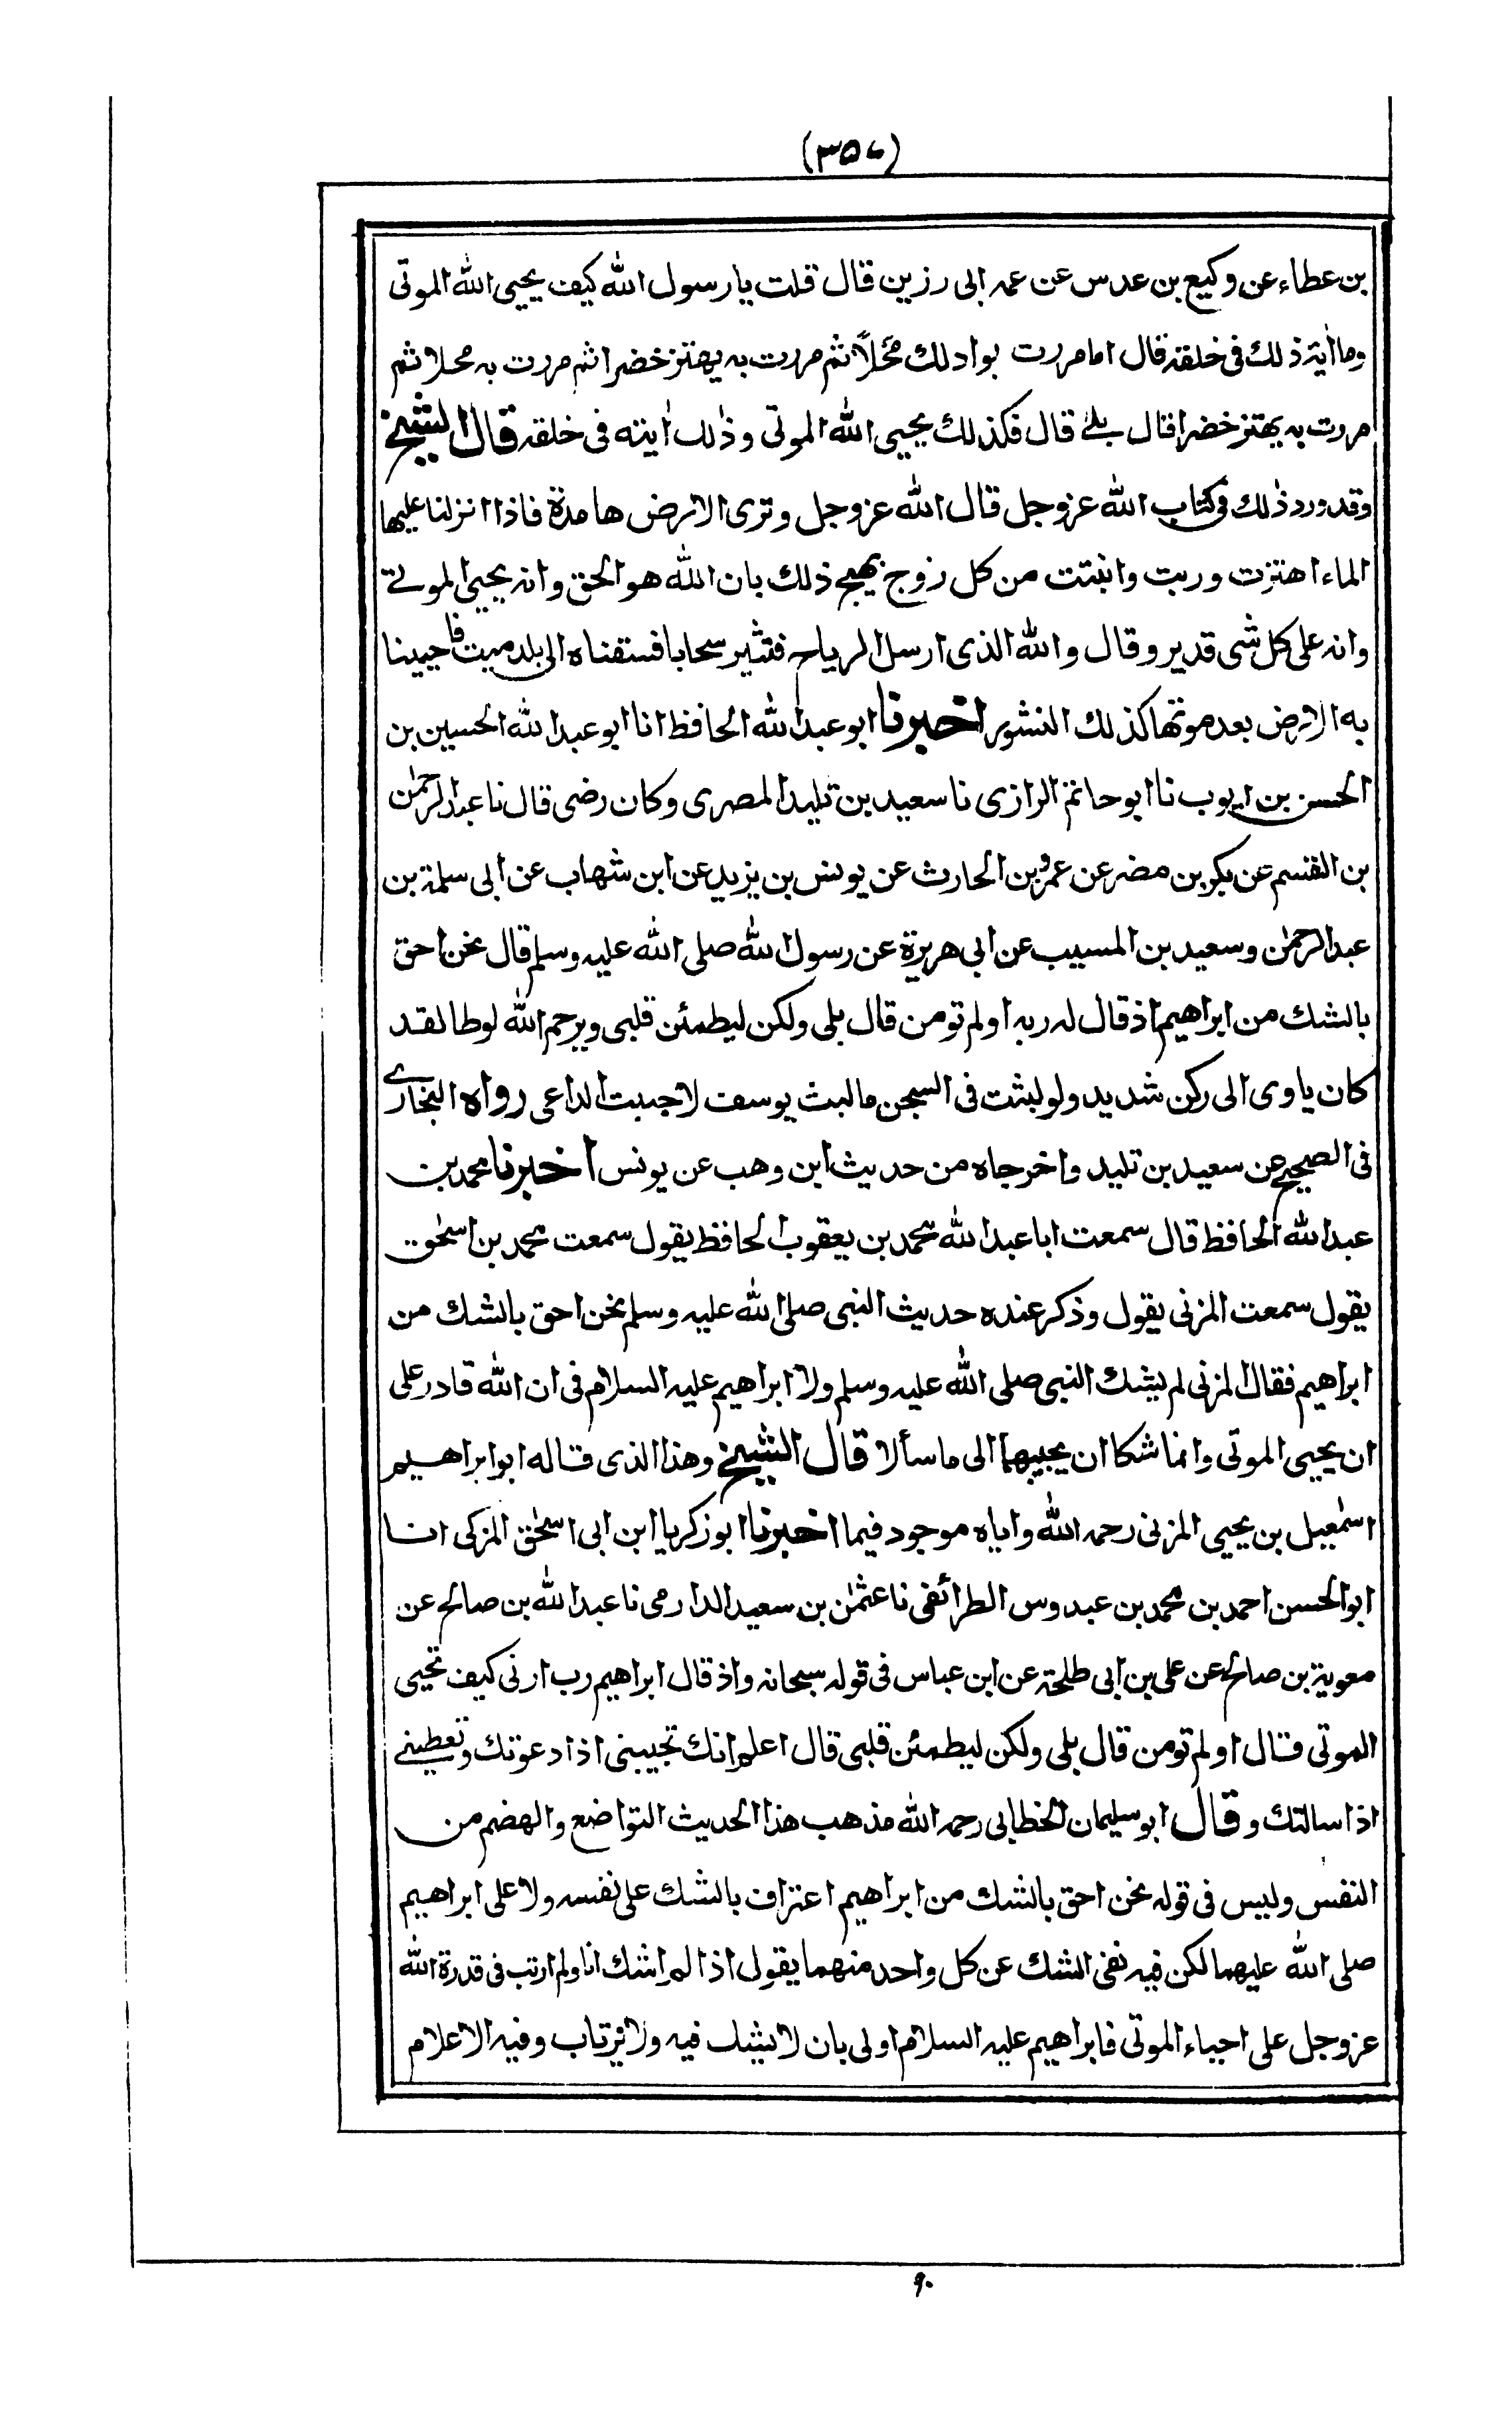 (٣٥٧)
بن عطاء عن وكيع بن عدس عن عمه ابى رزين قال قلت يا رسول الله كيف يحيى الله الموتى
وما اية ذلك فى خلقه قال اما مررت بواد لك محلا ثم مررت به يهتز خضرا ثم مررت به محلا ثم
مررت به يهتز خضرا قال بلى قال فكذلك يحيى الله الموتى وذلك ايته فى خلقه قال الشيخ
وقد ورد ذلك فى كتاب الله عز وجل قال الله عز وجل وترى الارض هامدة فاذا انزلنا عليها
الماء اهتزت وربت وانبتت من كل زوج بهيج ذلك بان الله هو الحق وانه يحيى الموتى
وانه على كل شى قدير وقال والله الذى ارسل الرياح فتثير سحابا فسقناه الى بلد ميت فاحيينا
به الارض بعد موتها كذلك النشور اخبرنا ابو عبد الله الحافظ انا ابو عبد الله الحسين بن
الحسن بن ايوب نا ابو حاتم الرازى نا سعيد بن تليد المصرى وكان رضى قال نا عبد الرحمن
بن القسم عن بكر بن مضر عن عمرو بن الحارث عن يونس بن يزيد عن ابن شهاب عن ابى سلمة بن
عبد الرحمن وسعيد بن المسيب عن ابى هريرة عن رسول الله صلى الله عليه وسلم قال نحن احق
بالشك من ابراهيم اذ قال له ربه اولم تومن قال بلى ولكن ليطمئن قلبى ويرحم الله لوطا لقد
كان ياوى الى ركن شديد ولو لبثت فى السجن ما لبث يوسف لاجبت الداعى رواه البخارى
فى الصحيح عن سعيد بن تليد واخرجاه من حديث ابن وهب عن يونس اخبرنا محمد بن
عبد الله الحافظ قال سمعت ابا عبد الله محمد بن يعقوب الحافظ يقول سمعت محمد بن اسحق
يقول سمعت المزنى يقول وذكر عنده حديث النبى صلى الله عليه وسلم نحن احق بالشك من
ابراهيم فقال المزنى لم يشك النبى صلى الله عليه وسلم ولا ابراهيم عليه السلام فى ان الله قادر على
ان يحيى الموتى وانما شكا ان يجيبهما الى ما سألا قال الشيخ وهذا الذى قاله ابو ابراهيم
اسمعيل بن يحيى المزنى رحمه الله واياه موجود فيما اخبرنا ابو زكريا ابن ابى اسحق المزكى انا
ابو الحسن احمد بن محمد بن عبدوس الطرائفى نا عثمن بن سعيد الدارمى نا عبد الله بن صالح عن
معوية بن صالح عن على بن ابى طلحة عن ابن عباس فى قوله سبحانه واذ قال ابراهيم رب ارنى كيف تحيى
الموتى قال اولم تومن قال بلى ولكن ليطمئن قلبى قال اعلم انك تجيبنى اذا دعوتك وتعطينى
اذا سالتك وقال ابو سليمان الخطابى رحمه الله مذهب هذا الحديث التواضع والهضم من
النفس وليس فى قوله نحن احق بالشك من ابراهيم اعتراف بالشك على نفسه ولا على ابراهيم
صلى الله عليهما لكن فيه نفى الشك عن كل واحد منهما يقول اذا لم اشك انا ولم ارتب فى قدرة الله
عز وجل على احياء الموتى فابراهيم عليه السلام اولى بان لا يشك فيه ولا يرتاب وفيه الاعلام
٩٠